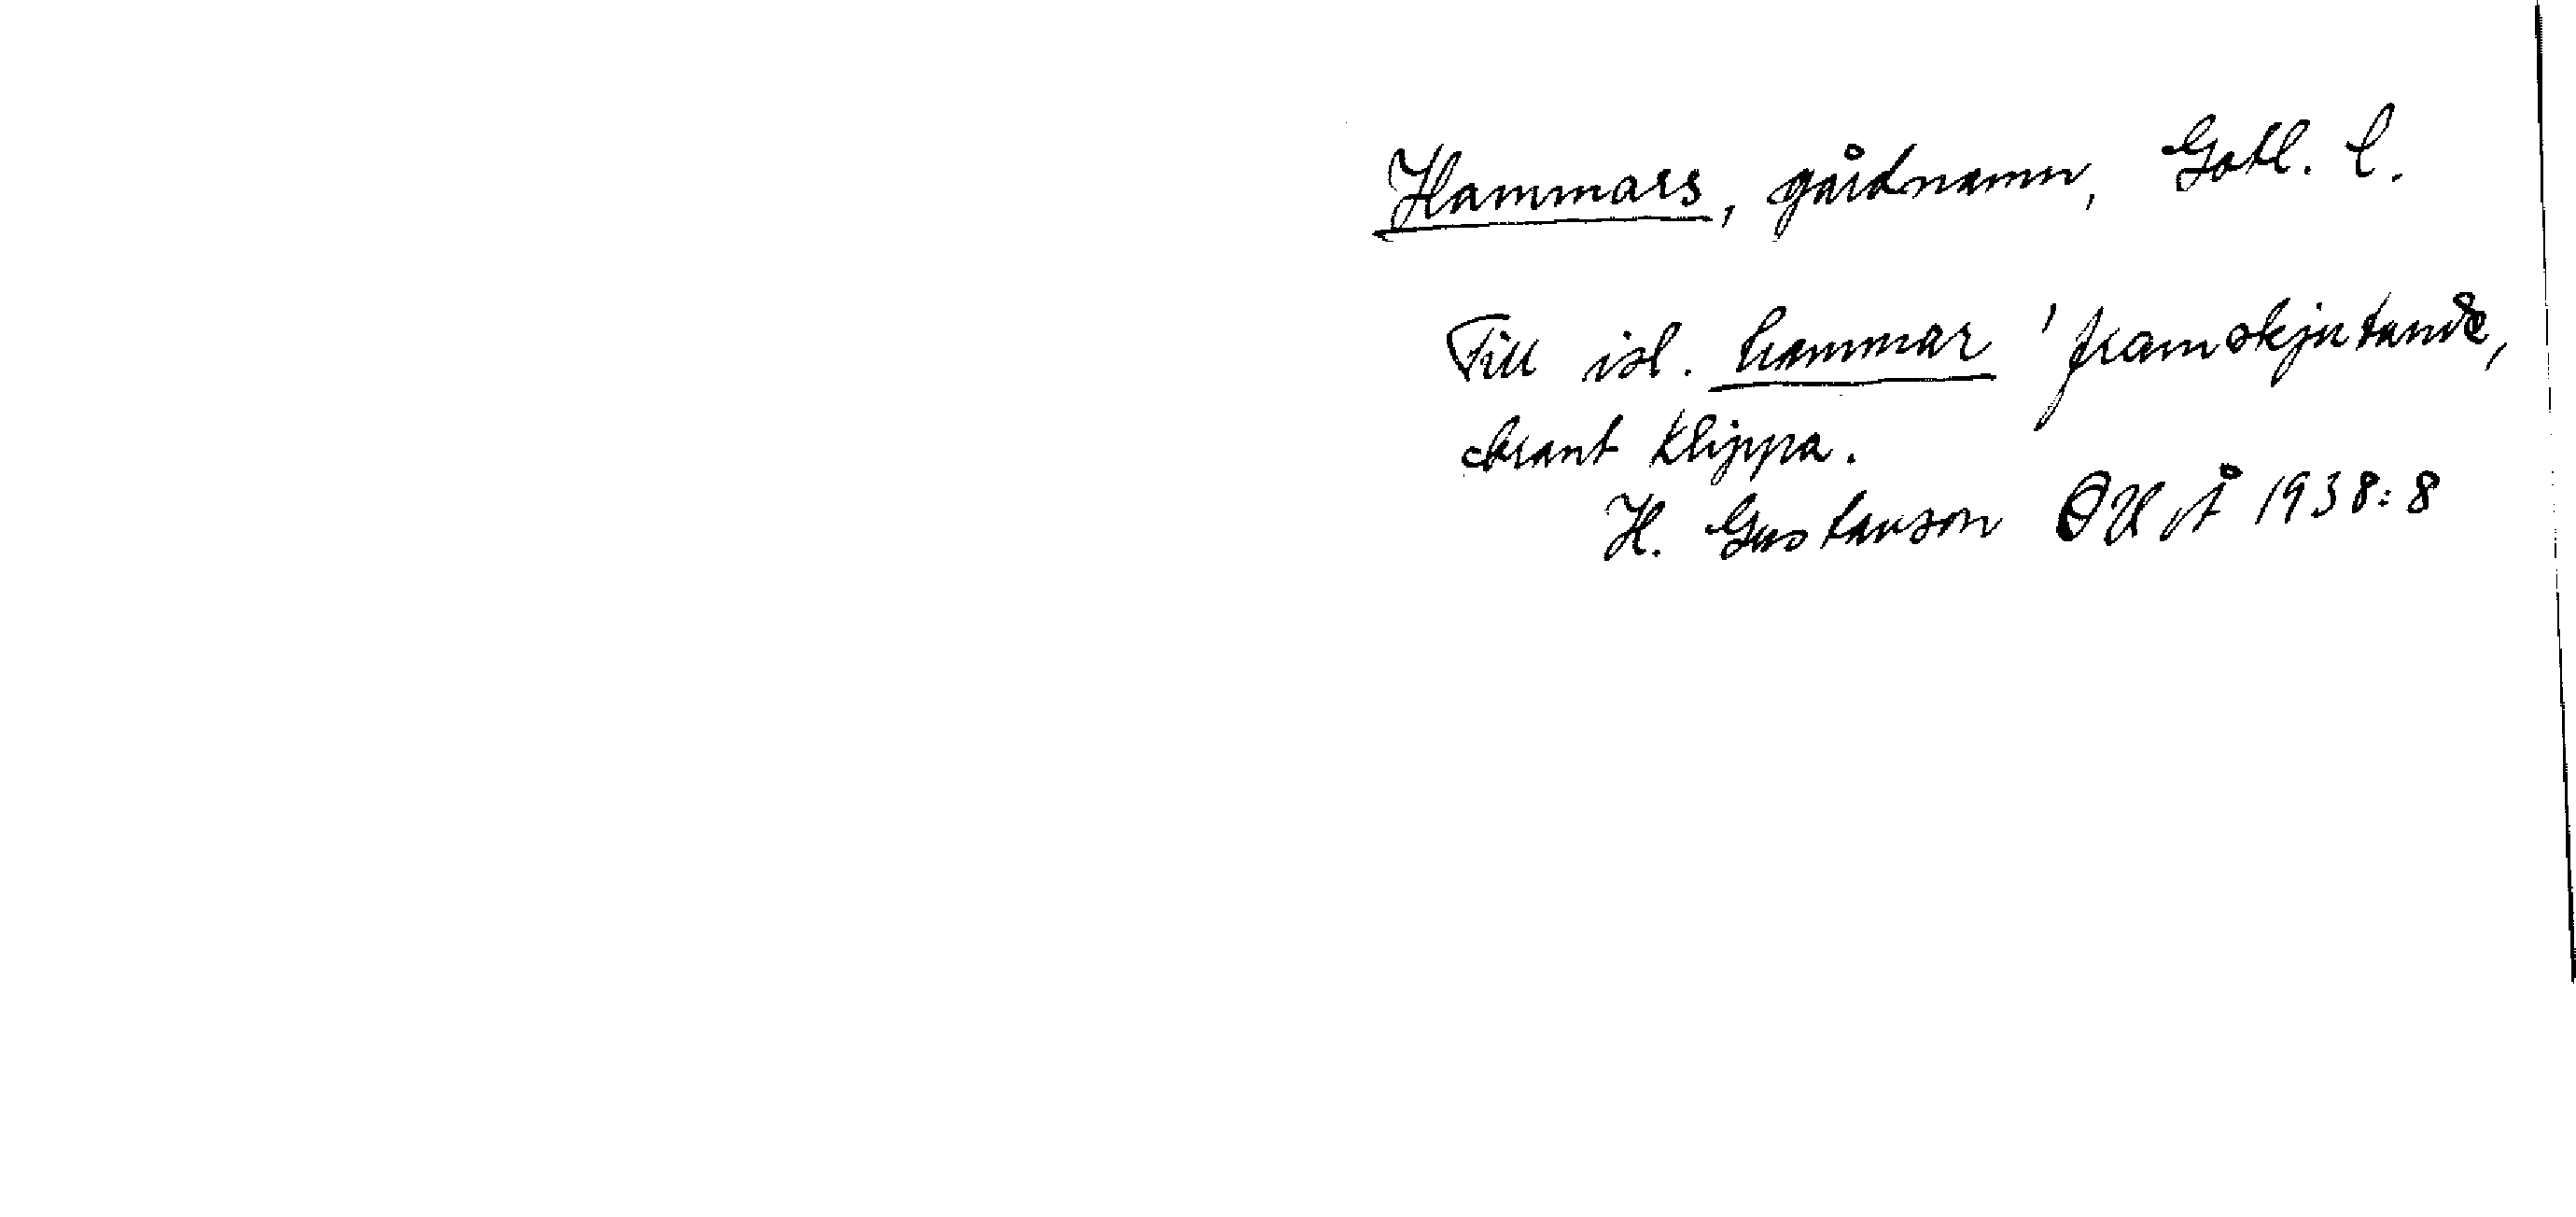 Hammars, gårdnamn, Gotl. l.
Till isl. hammar 'framskjutande,
brant klippa.
H. Gustavson UUÅ 1938:8